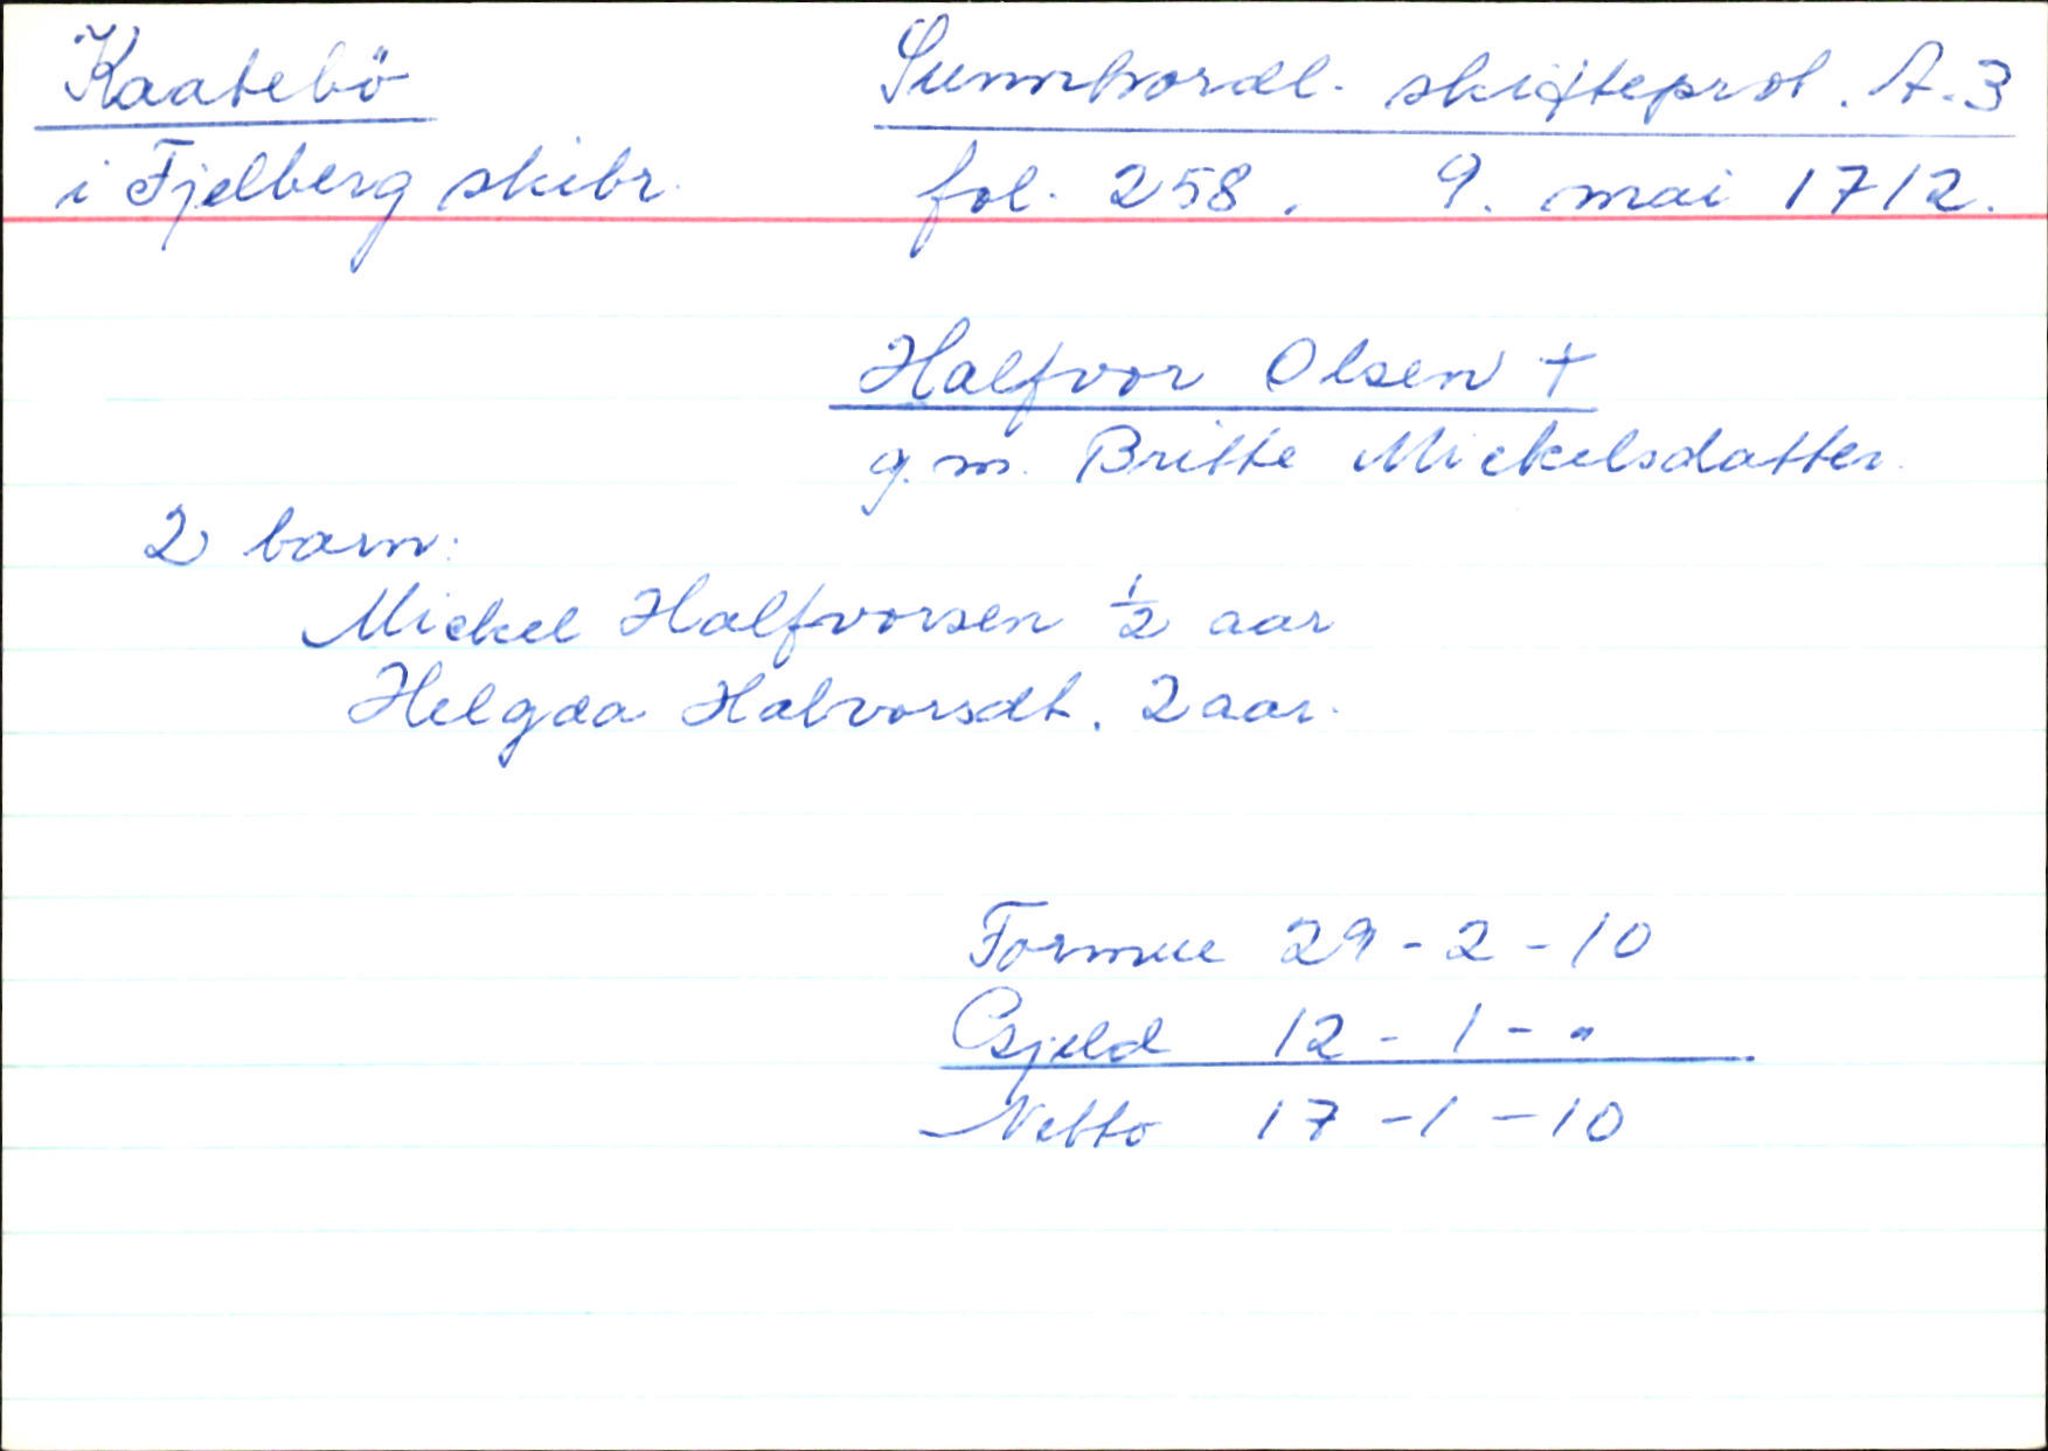 Kaatebö
Sunnhordl. skifteprot. A.3
i Fjelberg skibr.
fol. 258. 9. mai 1712.
Halfvor Olsen +
g.m. Britte Mickelsdatter.
2 barn:
Mickel Halfvorsen ½ aar
Helgaa Halvorsdt. 2 aar.
Formue 29 - 2 - 10
Gjeld 12 - 1 - "
Netto 17 - 1 - 10